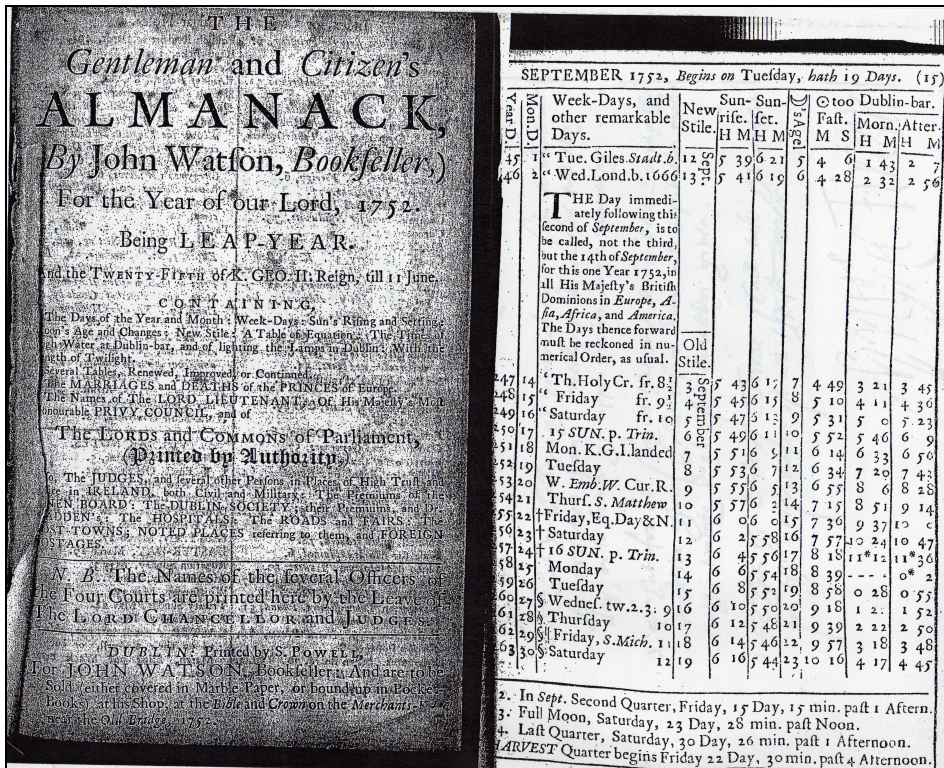 THE
Gentleman and Citizen's
ALMANACK,
(By John Watſon, Bookſeller,)
For the Year of our Lord, 1752.
Being LEAP-YEAR.
And the TWENTY-FIFTH of K. GEO. II. Reign, till 11 June.
CONTAINING,
The Days of the Year and Month: Week-Days: Sun's Riſing and Setting:
Moon's Age and Changes: New Stile: A Table of Equation: The Time of
High Water at Dublin-bar, and of lighting the Lamps in Dublin: With the
Length of Twilight.
Several Tables, Renewed, Improved, or Continued.
The MARRIAGES and DEATHS of the PRINCES of Europe.
The Names of The LORD LIEUTENANT: Of His Majeſty's Moſt
Honourable PRIVY COUNCIL, and of
The LORDS and COMMONS of Parliament,
(Printed by Authority.)
The JUDGES, and ſeveral other Perſons in Places of High Truſt and
in IRELAND, both Civil and Military: The Premiums of the
LINEN BOARD: The DUBLIN SOCIETY; their Premiums, and Dr.
MADDEN's: The HOSPITALS: The ROADS and FAIRS: The
POST-TOWNS; NOTED PLACES referring to them, and FOREIGN
POSTAGES.
N. B. The Names of the ſeveral Officers of
the Four Courts are printed here by the Leave of
The LORD CHANCELLOR and JUDGES.
DUBLIN: Printed by S. POWELL,
For JOHN WATSON, Bookſeller: And are to be
Sold (either covered in Marble Paper, or bound up in Pocket-
Books) at his Shop, at the Bible and Crown on the Merchants-
near the Old Bridge, 1752.
SEPTEMBER 1752, Begins on Tueſday, hath 19 Days. (15)
Year D. Mon. D. Week-Days, and other remarkable Days. New Stile. Sun-riſe. H M Sun-ſet. H M D's Age ☉ too Faſt. M S Dublin-bar. Morn. H M After. H M
45 1 " Tue. Giles Stadt. b. 12 Sept. 5 39 6 21 5 4 6 1 43 2 7
46 2 " Wed. Lond. b. 1666 13 5 41 6 19 6 4 28 2 32 2 56
THE Day immedi-
ately following this
ſecond of September, is to
be called, not the third,
but the 14th of September,
for this one Year 1752, in
all His Majeſty's Britiſh
Dominions in Europe, A-
ſia, Africa, and America.
The Days thence forward
muſt be reckoned in nu-
merical Order, as uſual.
Old
Stile.
247 14 " Th. Holy Cr. fr. 8½ 3 September 5 43 6 17 7 4 49 3 21 3 45
248 15 " Friday fr. 9½ 4 5 45 6 15 8 5 10 4 11 4 36
249 16 " Saturday fr. 10 5 5 47 6 13 9 5 31 5 0 5 23
250 17 15 SUN. p. Trin. 6 5 49 6 11 10 5 52 5 46 6 9
251 18 Mon. K.G.I. landed 7 5 51 6 9 11 6 14 6 33 6 56
252 19 Tueſday 8 5 53 6 7 12 6 34 7 20 7 43
253 20 W. Emb. W. Cur. R. 9 5 55 6 5 13 6 55 8 6 8 28
254 21 Thurſ. S. Matthew 10 5 57 6 3 14 7 15 8 51 9 14
55 22 † Friday, Eq. Day & N. 11 6 0 6 0 15 7 36 9 37 10 0
56 23 † Saturday 12 6 2 5 58 16 7 57 10 24 10 47
57 24 † 16 SUN. p. Trin. 13 6 4 5 56 17 8 18 11* 12 11* 36
58 25 Monday 14 6 6 5 54 18 8 39 - - - - 0* 2
59 26 Tueſday 15 6 8 5 52 19 8 58 0 28 0 55
60 27 § Wedneſ. tw. 2. 3. 9 16 6 10 5 50 20 9 18 1 2 1 52
61 28 § Thurſday 10 17 6 12 5 48 21 9 39 2 22 2 50
62 29 § Friday, S. Mich. 11 18 6 14 5 46 22 9 57 3 18 3 48
63 30 § Saturday 12 19 6 16 5 44 23 10 16 4 17 4 45
2. In Sept. Second Quarter, Friday, 15 Day, 15 min. paſt 1 Aftern.
3. Full Moon, Saturday, 23 Day, 28 min. paſt Noon.
4. Laſt Quarter, Saturday, 30 Day, 26 min. paſt 1 Afternoon.
HARVEST Quarter begins Friday 22 Day, 30 min. paſt 4 Afternoon.